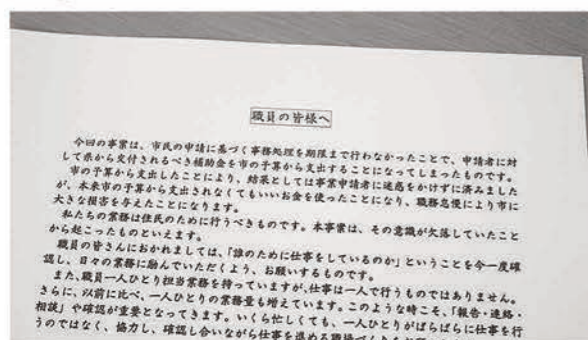 職員の皆様へ
今回の事業は、市民の申請に基づく事務処理を期限まで行わなかったことで、申請者に対
して県から交付されるべき補助金を市の予算から支出することになってしまったものです。
市の予算から支出したことにより、結果としては事業申請者に迷惑をかけずに済みました
が、本来市の予算から支出されなくてもいいお金を使ったことになり、職務怠慢により市に
大きな損害を与えたことになります。
私たちの業務は住民のために行うべきものです。本事業は、その意識が欠落していたこと
から起こったものといえます。
職員の皆さんにおかれましては、「誰のために仕事をしているのか」ということを今一度確
認し、日々の業務に励んでいただくよう、お願いするものです。
また、職員一人ひとり担当業務を持っていますが、仕事は一人で行うものではありません。
さらに、以前に比べ、一人ひとりの業務量も増えています。このような時こそ、「報告・連絡・
相談」や確認が重要となってきます。いくら忙しくても、一人ひとりがばらばらに仕事を行
うのではなく、協力し、確認し合いながら仕事を進める職場づくりを